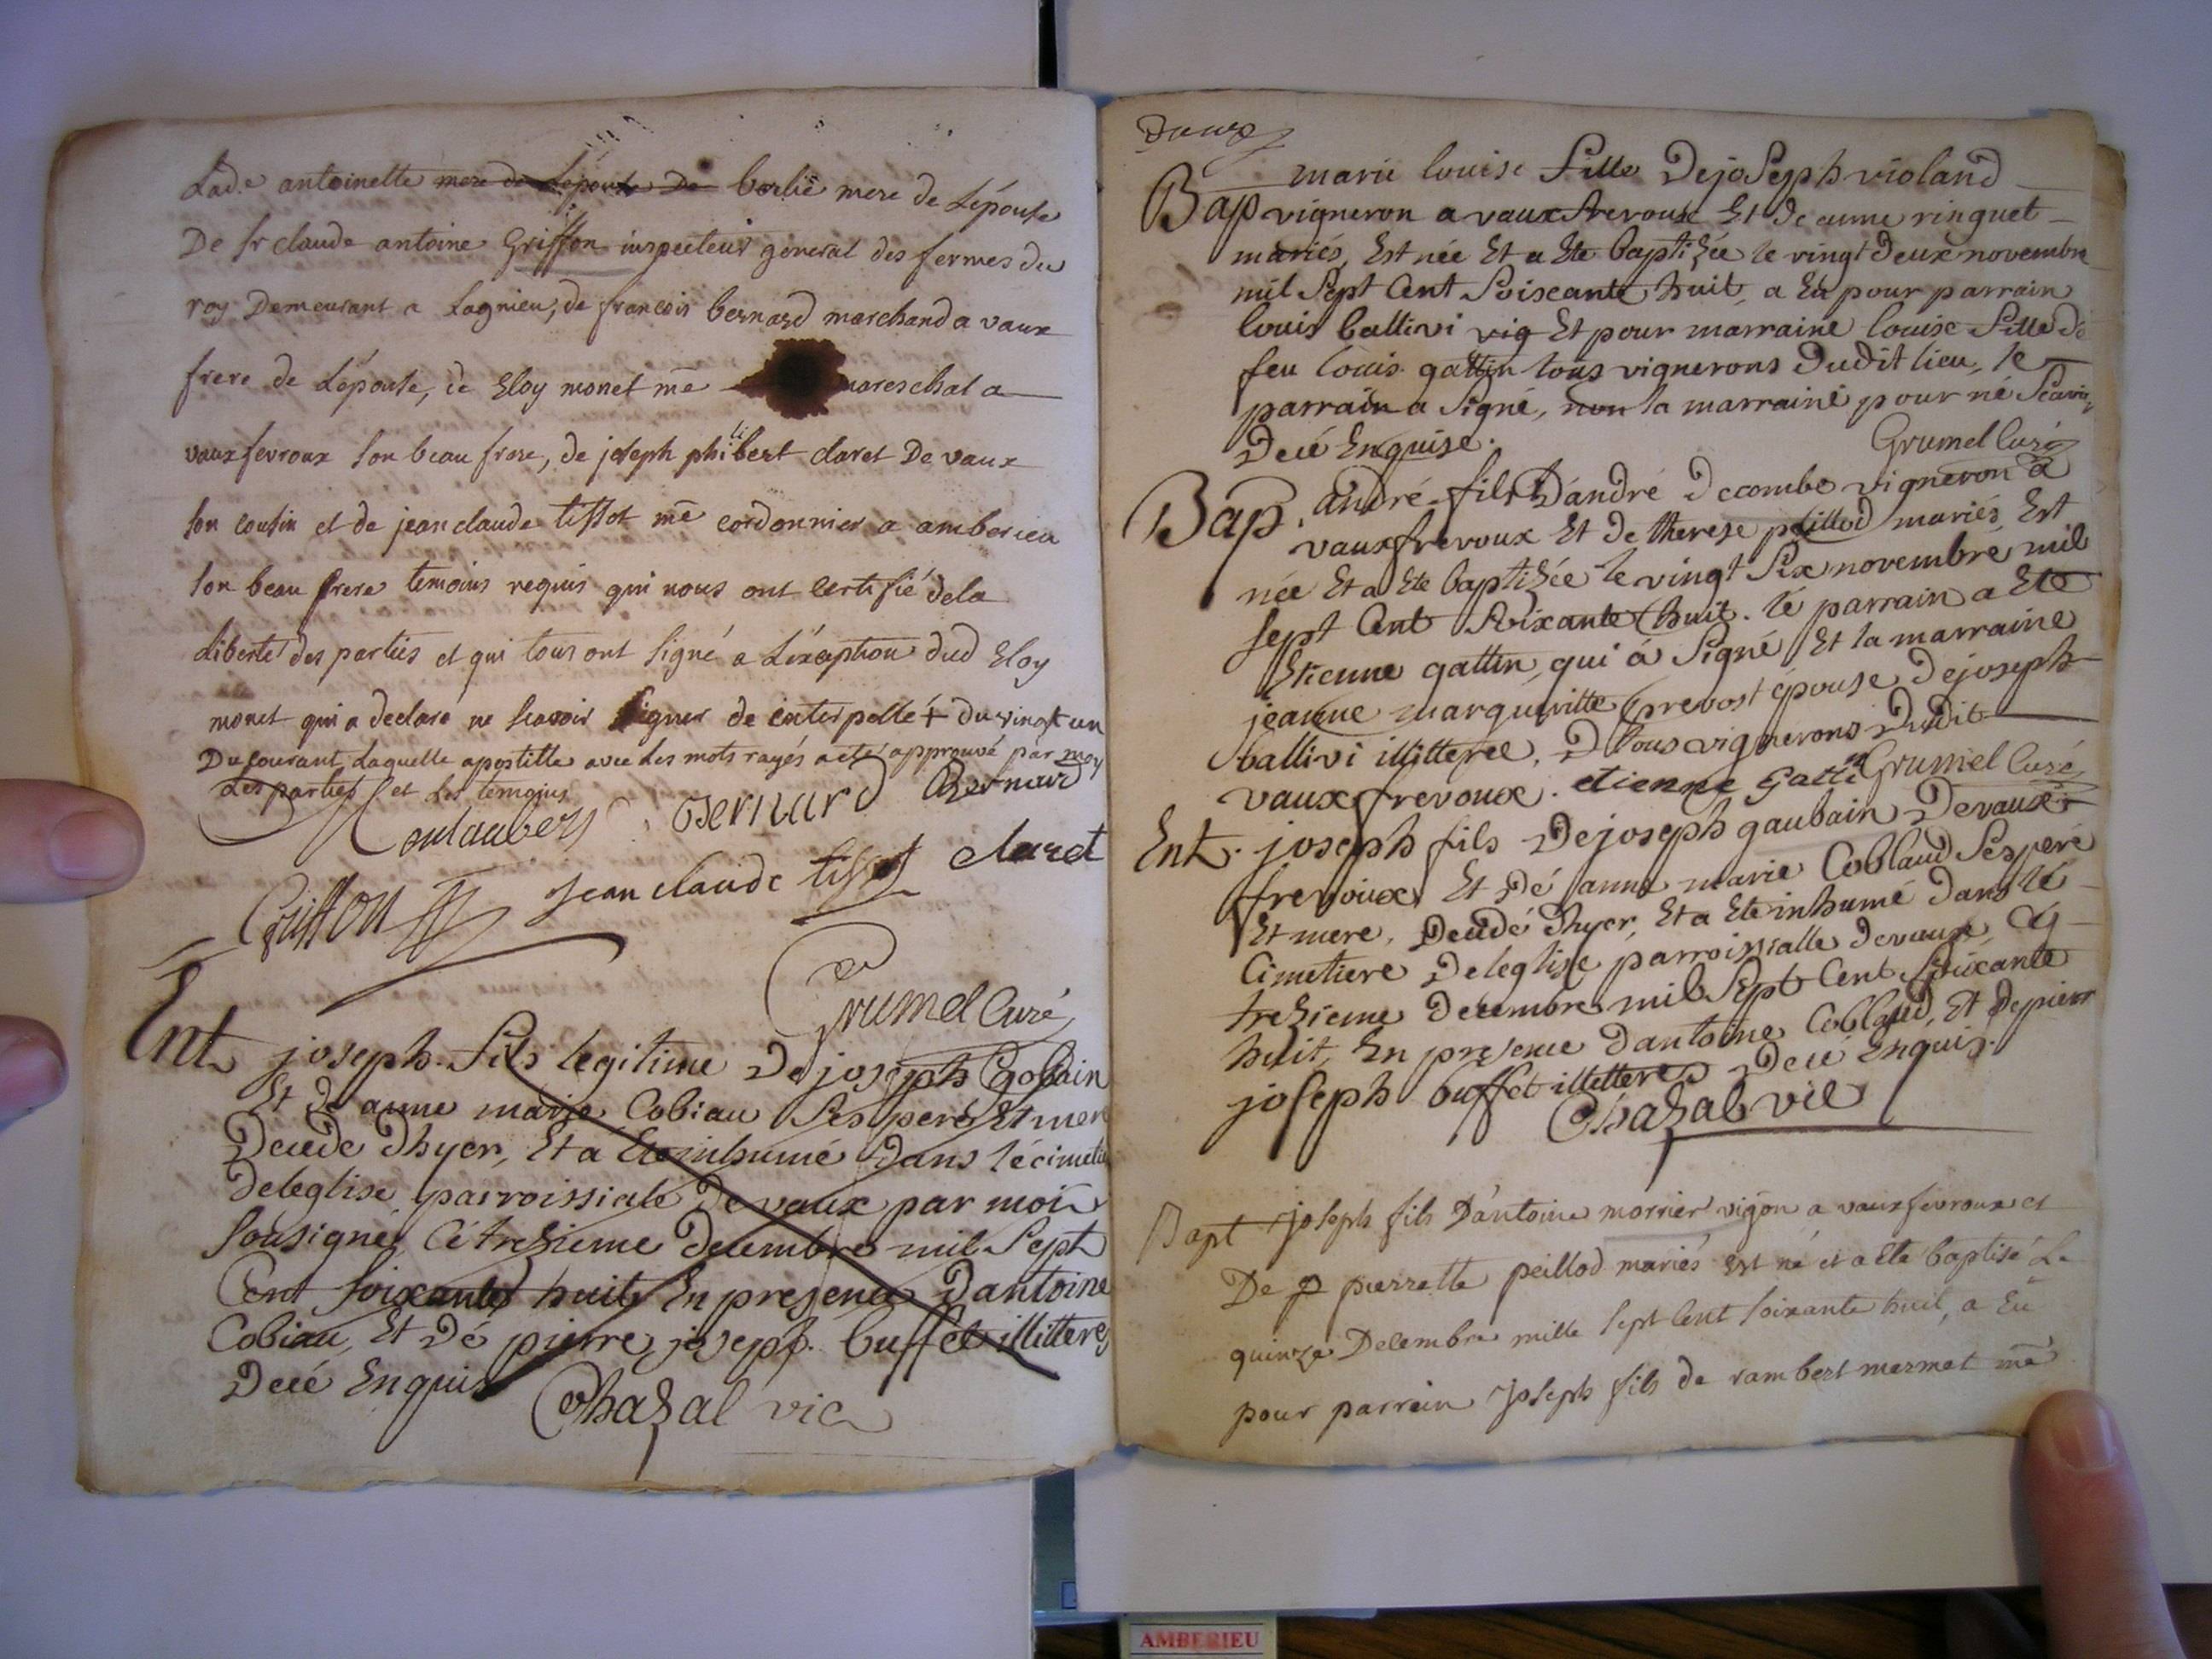 Lad.e antoinette mere de Lépouse De borlié mere de Lépouse
De sr claude antoine Griffon inspecteur general des fermes du
roy Demeurant a Lagnieu, de francois bernard marchand a vaux
frere de Lépouse, de Eloy monet me mareschal a
vauxfevroux son beau frere, de joseph philibert claret De vaux
son cousin et de jean claude tissot me cordonnier a amberieu
son beau frere temoins requis qui nous ont certifié dela
Liberté des parties et qui tous ont signé a Léxception dud Eloy
monet qui a declaré ne scavoir signer de enterpellé + du vingt un
Du courant Laquelle apostille avec Les mots rayés a été approuvé par moy
Les parties et Les temoins
Bernard Bernard
Griffon jean claude tissot claret
Grumel Curé
Ent joseph fils legitime De joseph Gobain
Et De anne marie Cobiau Ses pere Et mere
Decede Dhyer, Et a Ete inhumé Dans le cimetie
deleglise parroissiale De vaux par moi
Sousigné, Cé trezieme Decembre mil Sept
Cent Soixante huit En presence Dantoine
Cobiau, Et Dé pierre joseph buffet illitteres
De ce Enquis Chazal vic
Bap marie louise fille De joseph violand
vigneron a vauxfrevoux Et de anne ringuet
mariés, Est née Et a Ete baptizée le vingt Deux novembre
mil Sept Cent Soixante huit, a Eu pour parrain
louis ballivi vig Et pour marraine louise fille de
feu louis gattin tous vignerons Dudit lieu, le
parrain a Signé, non la marraine pour né Scavoir
De cé Enquise. Grumel Curé
Bap. andré fils D'andré Decombe vigneron a
vauxfrevoux Et de therese peillod mariés, Est
née Et a Ete baptizée le vingt Six novembre mil
sept Cent Soixante huit. le parrain a Ete
Etienne gattin, qui a Signé, Et la marraine
jeanne marguritte prevost épouse De joseph
ballivi illitteree, tous vignerons Dudit
vauxfrevoux. etienne Gattin Grumel Curé
Ent. joseph fils De joseph gaubain De vaux
frevoux Et Dé anne marie Coblaud Ses pere
Et mere, Decedé Dhyer, Et a Ete inhumé Dans le
Cimetiere De leglise parroissialle de vaux, Cé
trezieme Decembre mil Sept Cent Soixante
huit, En presence Dantoine Coblaud, Et De pierre
joseph buffet illitteres De cé Enquis.
Chazal vic
Bapt joseph fils D'antoine morrier vigon a vauxfevroux et
De p pierrette peillod mariés est né et a eté baptisé Le
quinze Decembre mille sept cent soixante huit, a Eu
pour parrain joseph fils de rambert mermet me
AMBERIEU